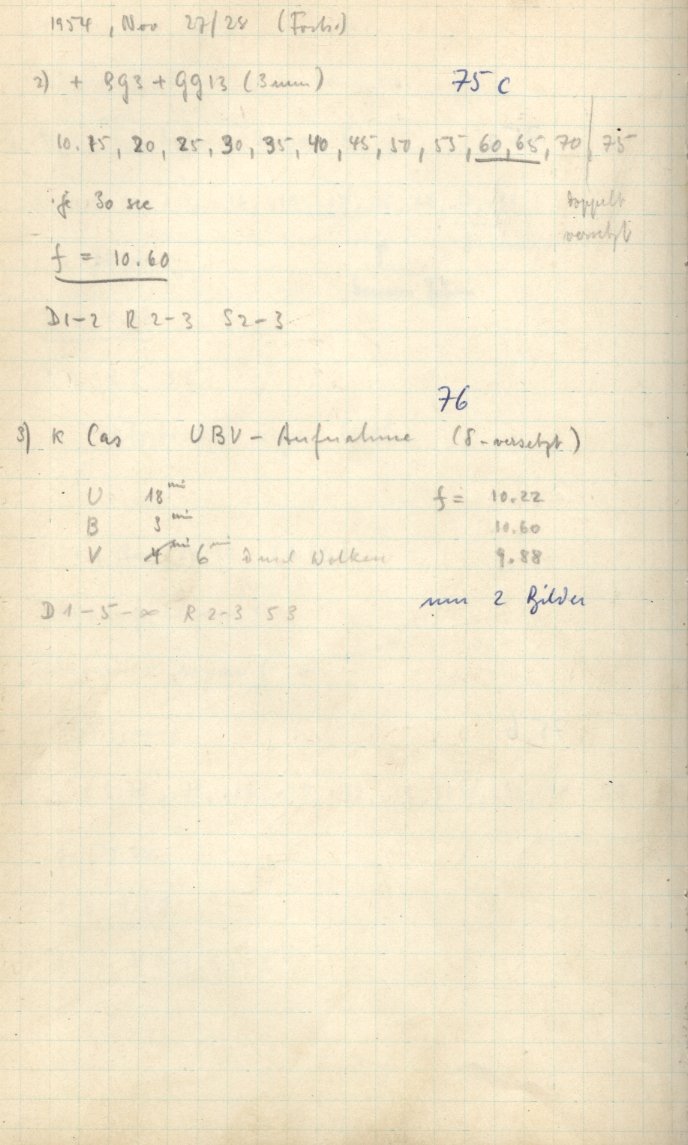 1954, Nov 27/28 (Forts.)
2) + BG3 + GG13 (3mm) 75c
10.15, 20, 25, 30, 35, 40, 45, 50, 55, 60, 65, 70, 75
je 30 sec doppelt
versetzt
f = 10.60
D1-2 R 2-3 S2-3
76
3) κ Cas UBV-Aufnahme (δ-versetzt)
U 18 min f = 10.22
B 3 min 10.60
V 4 min 6 min durch Wolken 9.88
D 1-5-∞ R 2-3 S3 nur 2 Bilder